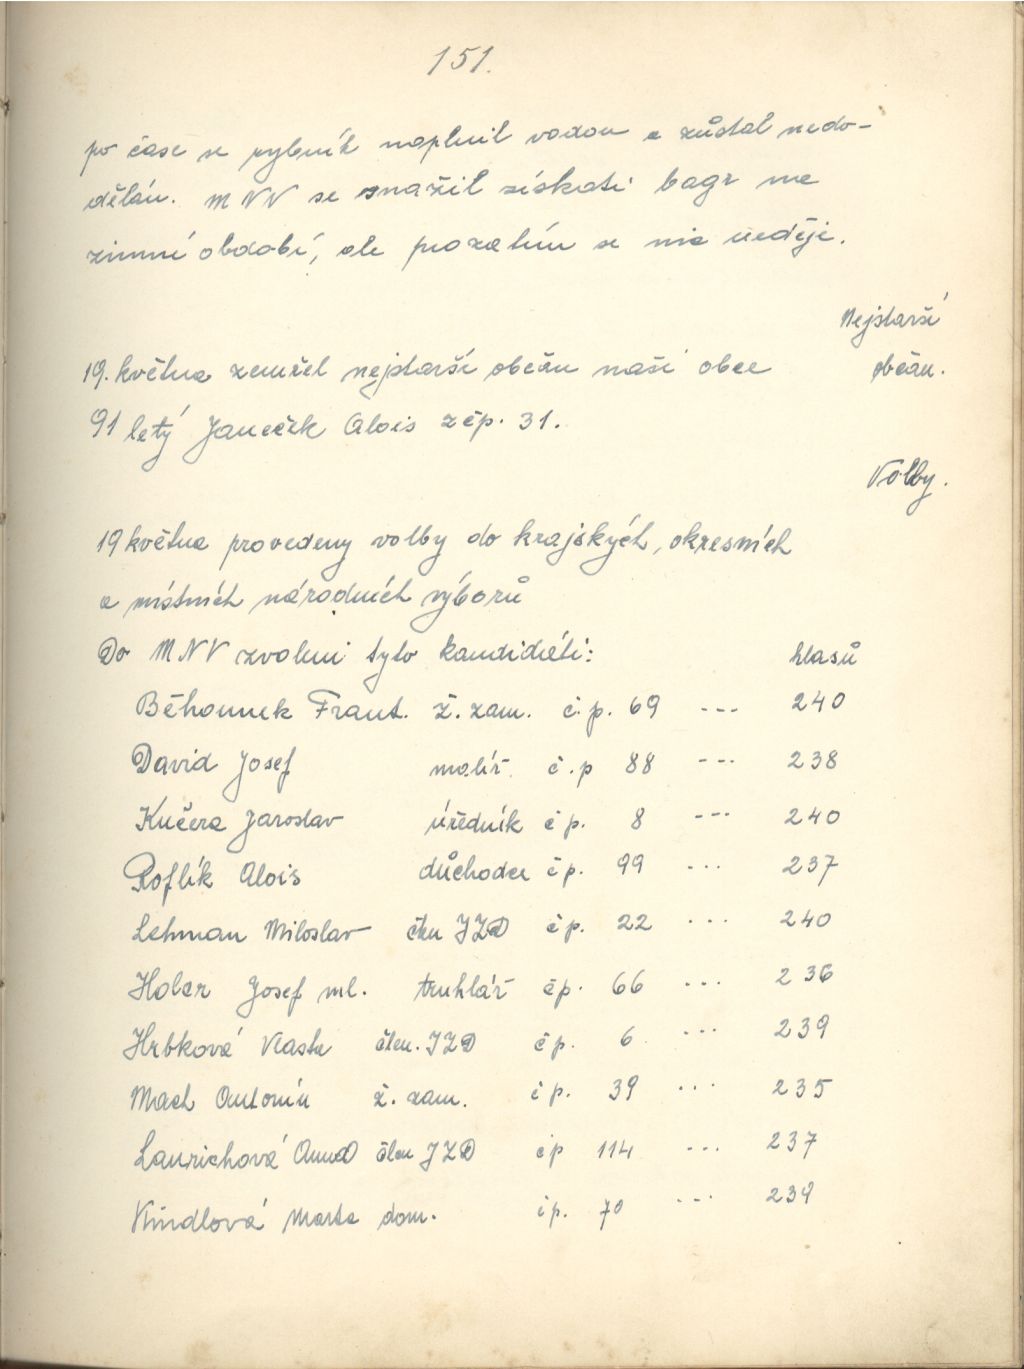 151.
po čase se rybník naplnil vodou a zůstal nedo-
dělán. MNV se snažil získati bagr na
zimní období, ale prozatím se nic neděje.
Nejstarší
občan.
19. května zemřel nejstarší občan naší obce
91 letý Janeček Alois z čp. 31.
Volby.
19 května provedeny volby do krajských, okresních
a místních národních výborů
Do MNV zvoleni tyto kandidáti: hlasů
Běhounek Frant. ž. zam. č.p. 69 --- 240
David Josef malíř č.p 88 --- 238
Kučera Jaroslav úředník čp. 8 --- 240
Roflík Alois důchodce čp. 99 ... 237
Lehman Miloslav člen JZD čp. 22 ... 240
Holer Josef ml. truhlář čp. 66 ... 236
Hrbková Vlasta člen. JZD čp. 6 ... 239
Mach Antonín ž. zam. čp. 39 ... 235
Laurichová Anna člen JZD čp 114 ... 237
Kindlová Marta dom. čp. 70 ... 239